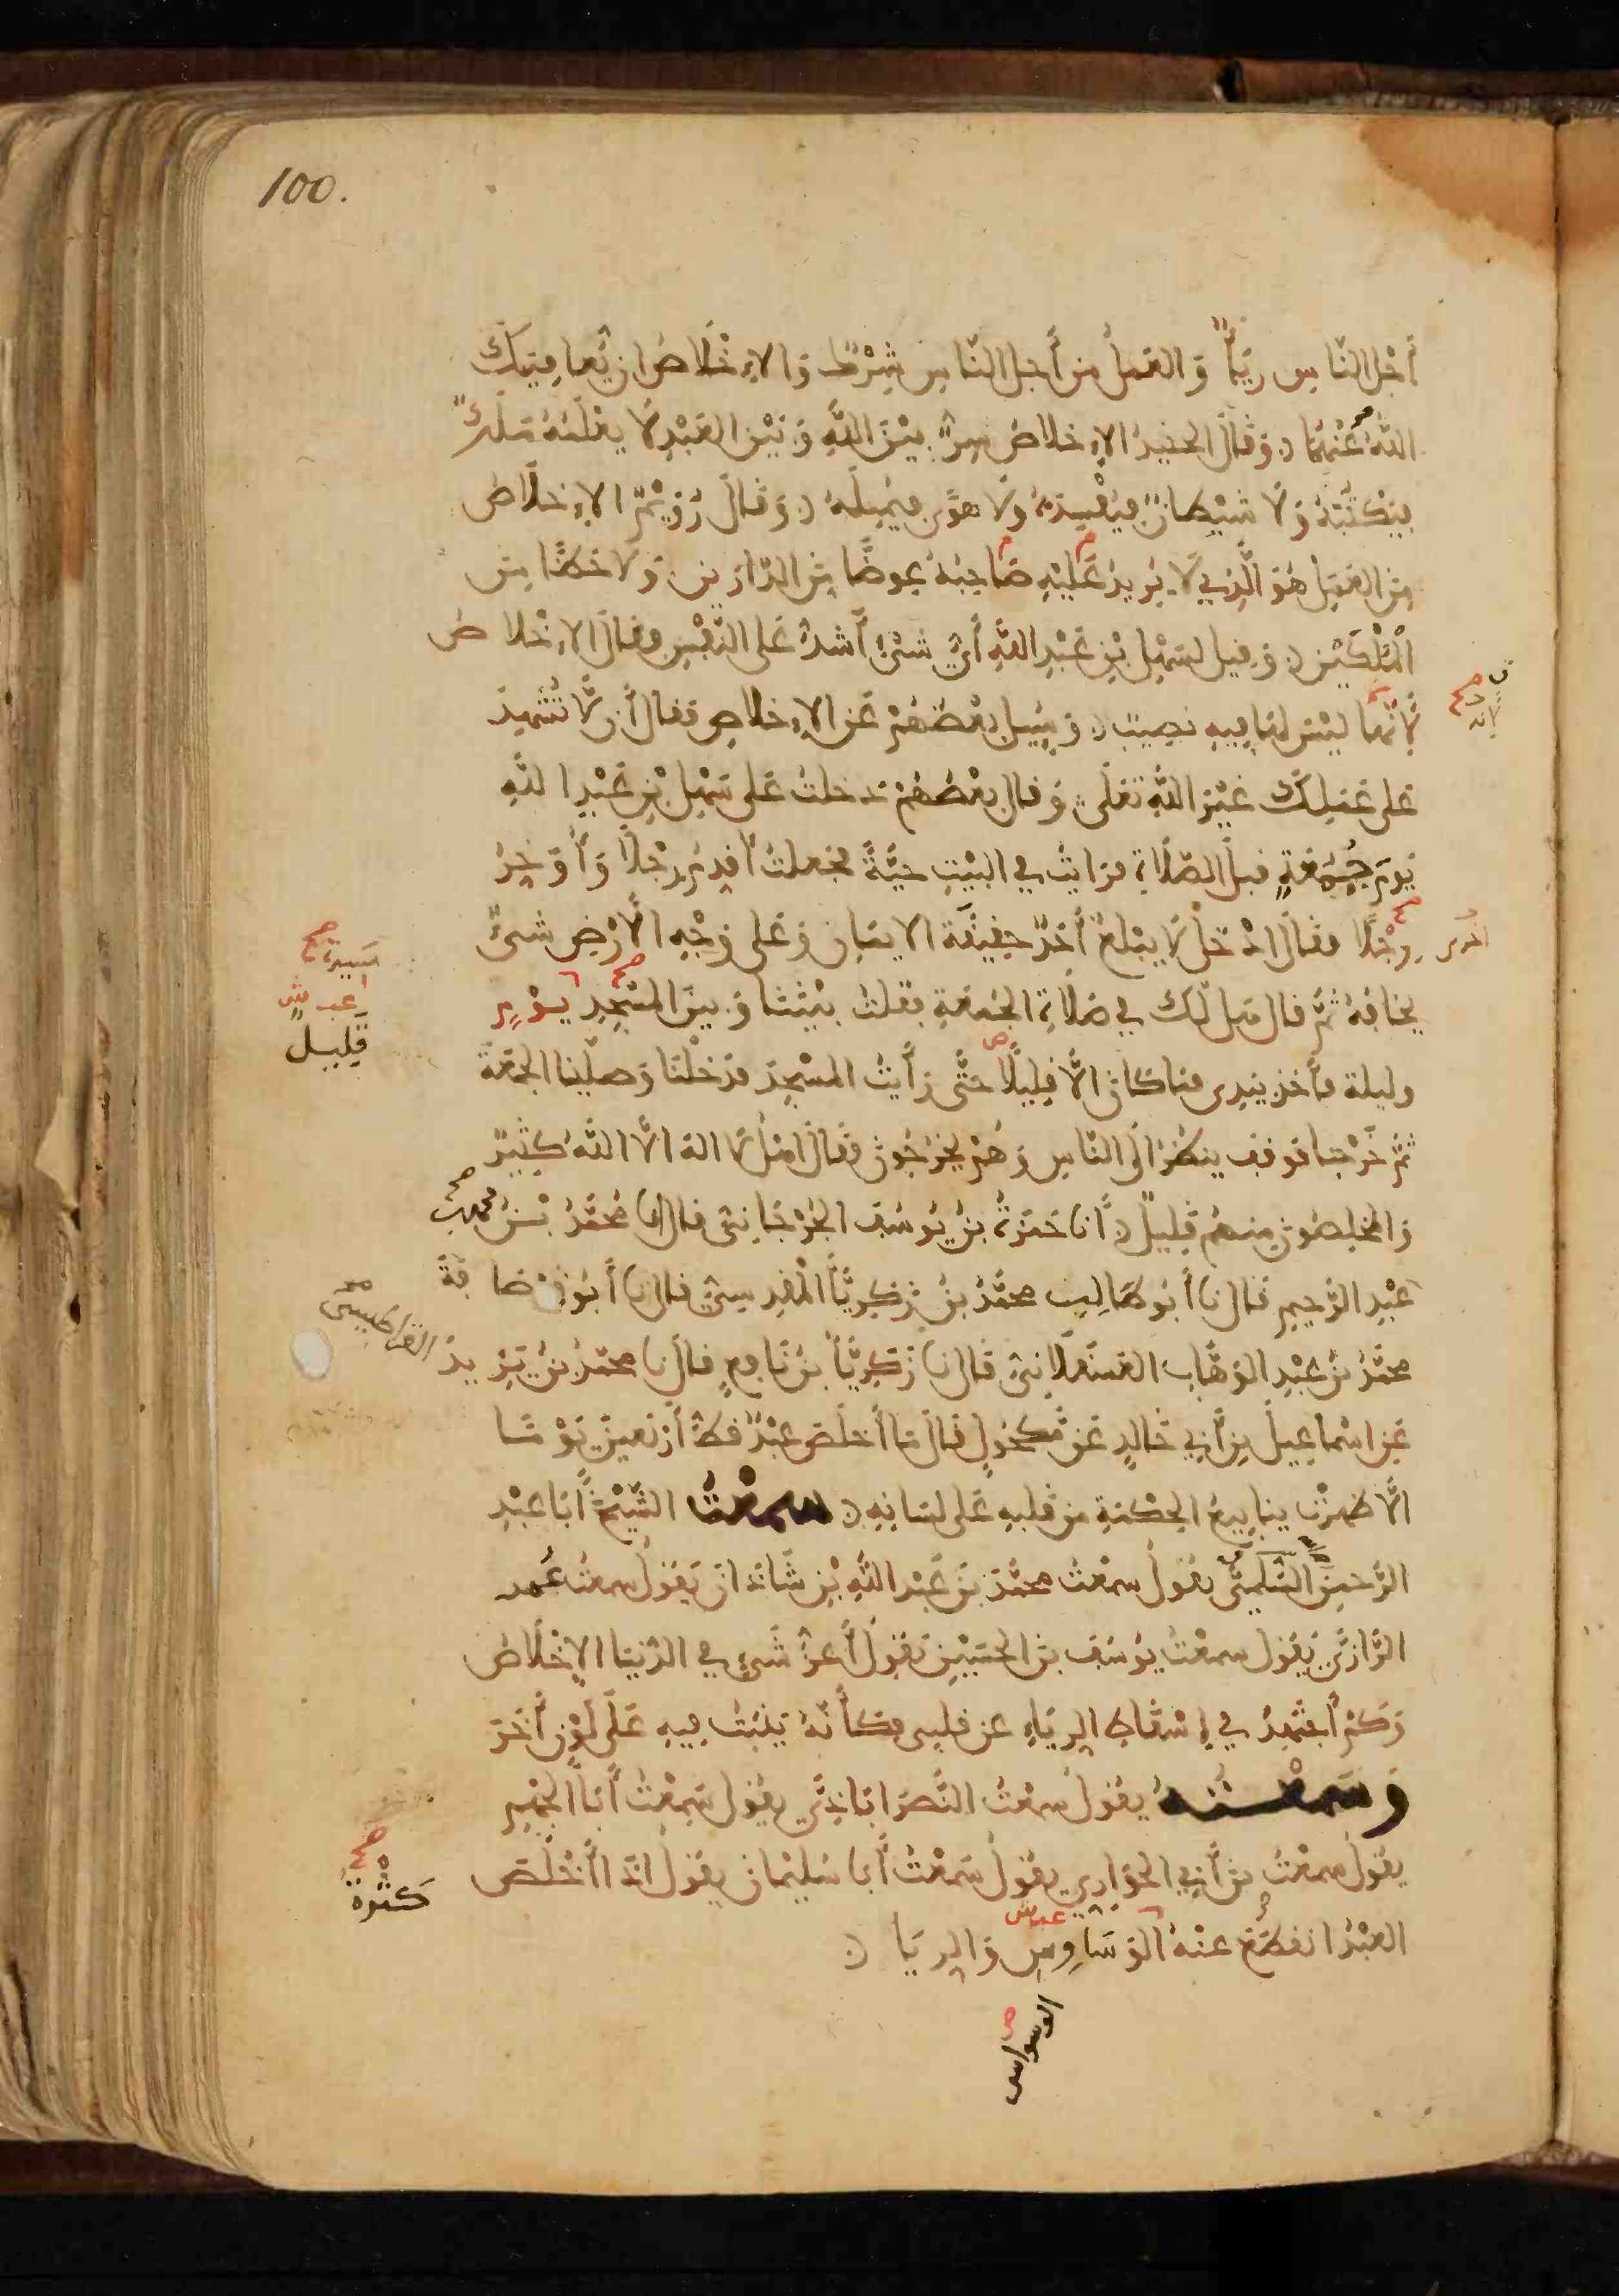 100.
أَجْلِ النَّاسِ رِيَاءٌ وَالعَمَلُ مِن أَجلِ النَّاسِ شِرْكٌ وَالاِخْلَاصُ ان يُّعافِيَكَ
اللهُ عَنْهُمَا وَقَالَ الجنيدُ الاِخلاصُ سِرٌّ بَيْنَ اللهِ وَبَيْنَ العَبْدِ لَا يعْلَمُهُ مَلَكٌ
فيَكْتُبَهُ وَلَا شَيْطَانٌ فيُفْسِدَهُ وَلَا هَوًى فيُمِيلَهُ وَقَالَ رُوَيْمٌ الاِخلَاصُ
مِنَ العَمَلِ هُوَ الَّذِي لَا يُرِيدُ عَلَيْهِ صَاحِبُهُ عِوضًا مِنَ الدَّارَيْنِ وَلا حَظًّا مِنَ
الْمَلَكَيْنِ وَقِيلَ لسَهْلِ بْنِ عَبْدِ اللهِ أَيُّ شَىْءٍ أَشَدُّ عَلى النَّفْسِ فقالَ الاِخْلاصُ
لِأَنَّهَا لَيْسَ لهَا فِيهِ نصِيبٌ وَسُئِلَ بَعْضُهُمْ عَنِ الاِخلاصِ فَقالَ أَن لَّا تُشْهِدَ
عَلى عَمَلِكَ غَيْرَ اللهِ تَعَلَى وَقالَ بَعْضُهُمْ دَخلتُ عَلى سَهْلِ بْنِ عَبْدِ اللهِ
يَوْمَ جُمُعَةٍ قبلَ الصَّلَاةِ فرَايتُ في البَيْتِ حَيَّةً فجعلتُ أُقَدِمُ رِجْلًا وَأُوَخِّرُ
رِجْلًا فقَالَ ادْخلْ لَا يَبْلغُ أَحَدٌ حقِيقَةَ الايمَانِ وَعَلى وَجْهِ الَارْضِ شَىْءٌ
يخَافُهُ ثُمَّ قالَ هَل لَّكَ في صَلَاةِ الجُمُعَةِ فقلتُ بَيْنَنَا وَبينَ المَسْجِدِ يوْمٍ
وليلة فأَخذ بيَدِى فمَا كَانَ الَّا قلِيلًا حَتَّى رَأَيتُ المسْجِدَ فدَخلْنَا وَصلَّينا الجمعَةَ
ثمَّ خَرَجْنَا فوَقفَ ينظُرُ الَى النَّاسِ وَهُمْ يَخرُجُونَ فقَالَ اهْلُ لَا اله الَّا اللهُ كَثِيرٌ
وَالمُخلِصُونَ مِنهُم قلِيلٌ أَنَا حَمْزَةُ بنُ يُوسُفَ الجُرْجَانِيُّ قالَ نا مُحَمَّدُ بْنُ محمد بن
عَبْدِ الرَّحِيمِ قَالَ نا أَبُو طَالِبٍ محمَّدُ بنُ زَكَرِيَّا الْمَقْدِسيُّ قال نا أَبُو قرْصَافَةَ
محمَّدُ بْنُ عَبْدِ الوَهَّابِ العَسْقَلَانِيُّ قَالَ نا زَكَرِيَّا بنُ نَافعٍ قالَ نا محمَّدُ بنُ يَزِيدَ القراطيسيّ
عَنِ اسْمَاعِيلَ بنِ أَبِي خَالِدٍ عَن مَّكْحُولٍ قَالَ مَا أَخلَصَ عَبْدٌ قَطُّ أَرْبَعِينَ يَوْمًا
الَّا ظهرَتْ ينَابِيعُ الحِكْمَةِ مِن قلبِهِ عَلى لسَانِهِ سمعْتُ الشَّيْخَ أَبَا عَبْدِ
الرَّحمنِ السُّلَمِيَّ يقُولُ سمعْتُ محمَّدَ بنَ عَبْدِ اللهِ بْنِ شَاذَانَ يَقُولُ سمعتُ عَمر
الرَّازيَّ يَقُولُ سمعْتُ يُوسُفَ بنَ الحُسَيْنِ يَقُولُ أَعزُّ شَىْءٍ في الدُّنيَا الاِخْلَاصُ
وَكَمْ أَجتهِدُ في إِسْقَاطِ الرِيَاءِ عن قلبِى فكَأَنَّهُ يَنبُتُ فِيهِ عَلَى لَوْنٍ أَخَرَ
وَسَمعْتُهُ يقُولُ سمعْتُ النَّصْرَابَاذِيَّ يقُولُ سَمِعْتُ أَبَا الجَهْمِ
يقُولُ سمعْتُ بنَ أَبِي الحَوَارِي يقُولُ سَمعْتُ أَبَا سُلَيْمَانَ يقُولُ اذَا أَخْلَصَ
العَبْدُ انقطَعَ عنْهُ الوَسَاوِسِ وَالرِيَا
لأنه
أخرى
مسيرة
قَلِيل
كَثْرةُ
الوسواس